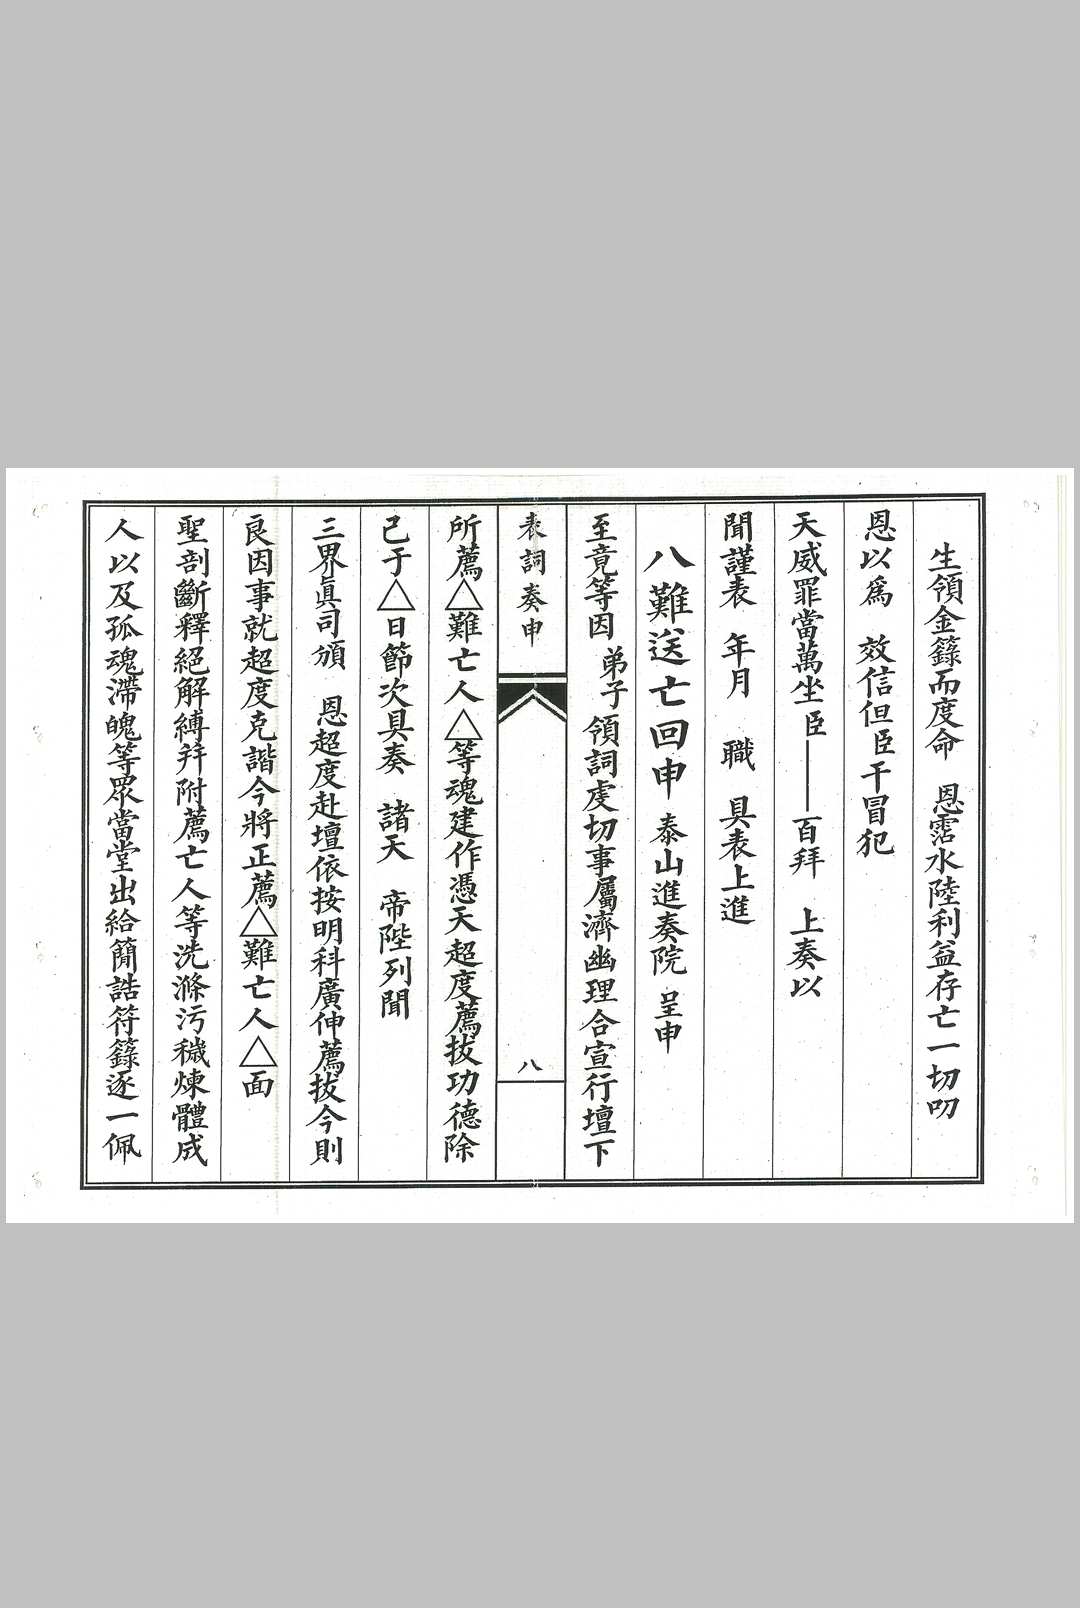 生領金籙而度命　恩霑水陸利益存亡一切叨
恩以爲　效信但臣干冒犯
天威罪當萬坐臣——百拜　上奏以
聞謹表　年月　職　具表上進
八難送亡回申　泰山進奏院　呈申
至竟等因　弟子領詞虔切事屬濟幽理合宣行壇下
表詞奏申　八
所薦△難亡人△等魂建作憑天超度薦拔功德除
已于△日節次具奏　諸天　帝陛列聞
三界眞司頒　恩超度赴壇依按明科廣伸薦拔今則
良因事就超度克諧今將正薦△難亡人△面
聖剖斷釋絕解縛幷附薦亡人等洗滌污穢煉體成
人以及孤魂滯魄等眾當堂出給簡誥符籙逐一佩